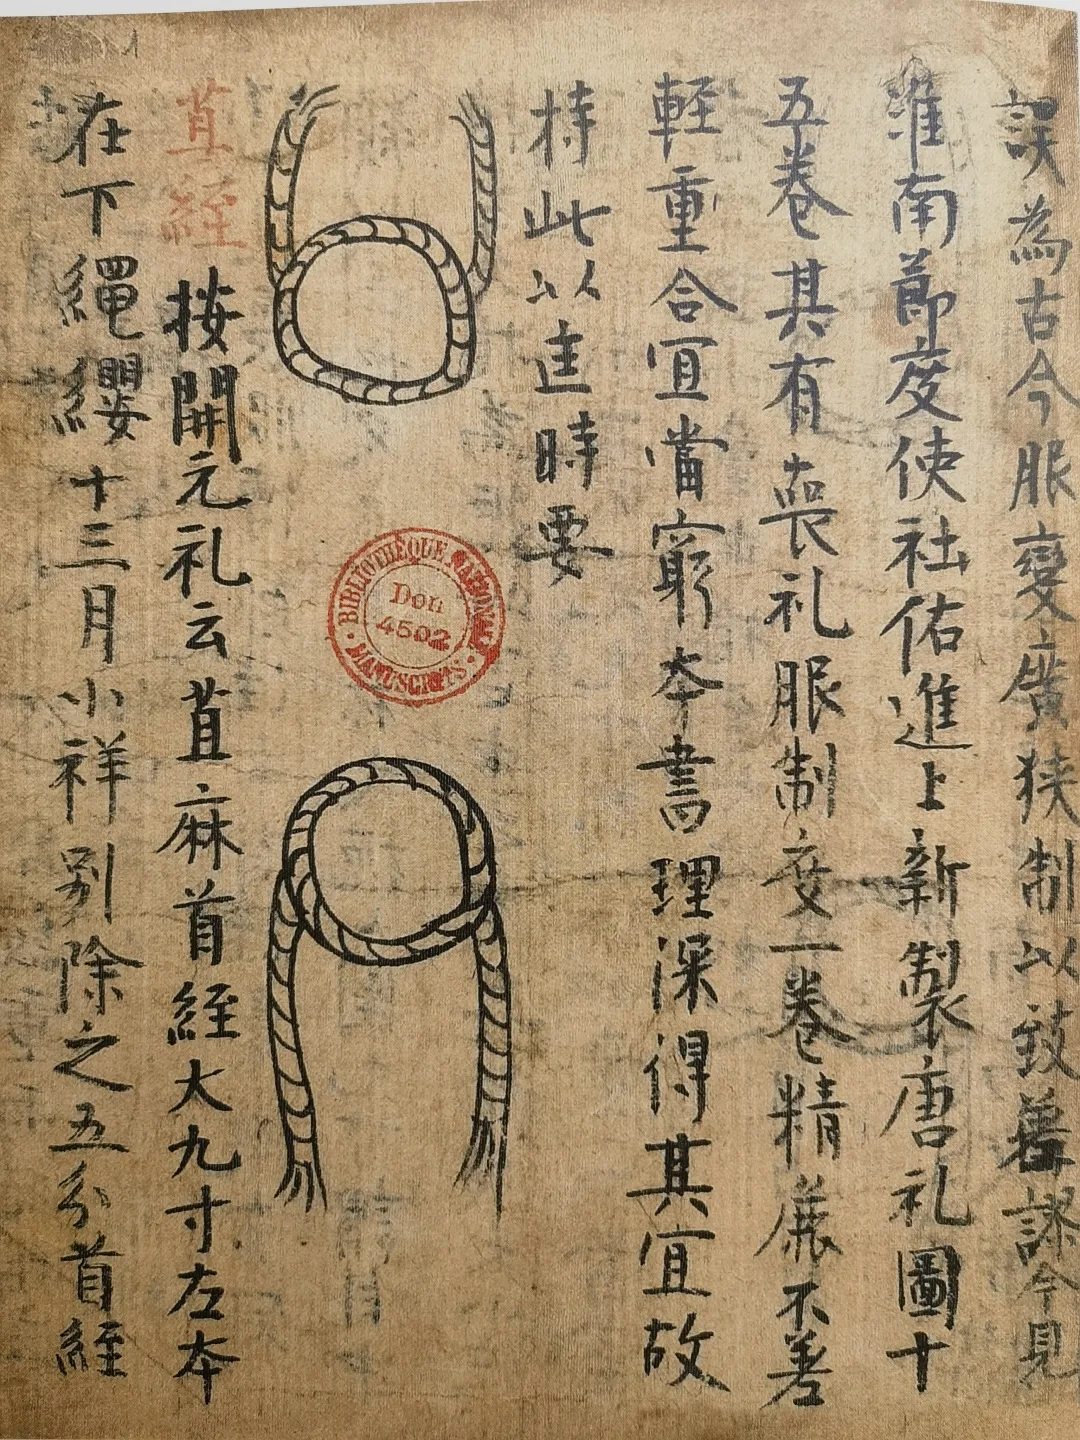 誤為古今服變廣狹制以致舛謬今見
淮南節度使社佑進上新製唐礼圖十
五卷其有喪礼服制度一卷精麁不善
軽重合宜當窮夲書理深得其宜故
持此以進時要
苴絰
按開元礼云苴麻首絰大九寸左夲
在下繩纓十三月小祥别除之五分首絰
BIBLIOTHÈQUE NATIONALE
Don
4502
MANUSCRITS